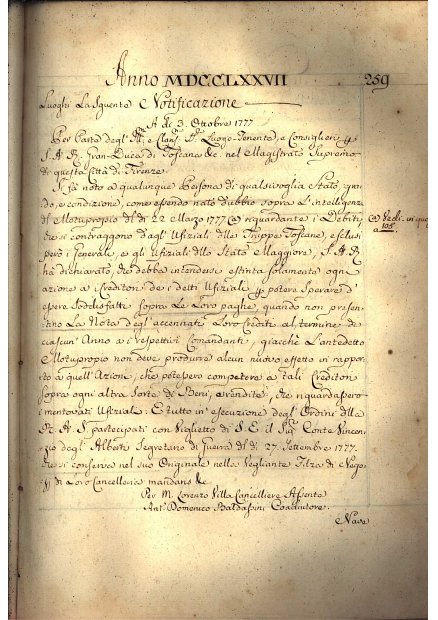 Anno MDCCLXXVII 259
Luoghi La Sguente Notificazione
A di 3. Ottobre 1777
Per Parte degl' Ill. e Clariss. Luogo-Tenente, e Consiglieri p
S. A. R. Gran-Duca di Toscana &c. nel Magistrato Supremo
di questa Città di Firenze.
Si fà noto a qualunque Persona di qualsivoglia Stato, gra-
do, e condizione, come essendo nato dubbio sopra L'intelligenza
del Motuproprio del dì 22 Marzo 1777 riguardante i Debiti
che si contraggono dagl' Ufiziali delle Truppe Toscane, esclusi
però i Generali, e gli Ufiziali dello Stato Maggiore, S. A. R.
hà dichiarato, che debba intendersi estinta solamente ogni
azione a Creditori dei detti Ufiziali p potere sperare d'
essere soddisfatti sopra Le Loro paghe, quando non presen-
tino La Nota degl' accennati Loro Crediti al termine di
ciascun' Anno a i respettivi Comandanti, giacchè L'antedetto
Motuproprio non deve produrre alcun nuovo effetto in rappor-
to a quell' Azioni, che potessero competere a tali Creditori
sopra ogni altra Sorte di Beni, o rendite, che riguardassero
i mentovati Ufiziali: E tutto in esecuzione degl' Ordini della
R. A. S. partecipati con Viglietto di S. E. il Sig. Conte Vincen-
zio degl' Alberti Segretario di Guerra del dì 27. Settembre 1777.
che si conserva nel suo Originale nella Vegliante Filza di Nego-
zj di Loro Cancelleria mandans &c.
Per M. Lorenzo Villa Cancelliere Assente
Ant. Domenico Baldassini Coadiutore.
Nave
Vedi. in que
a 105